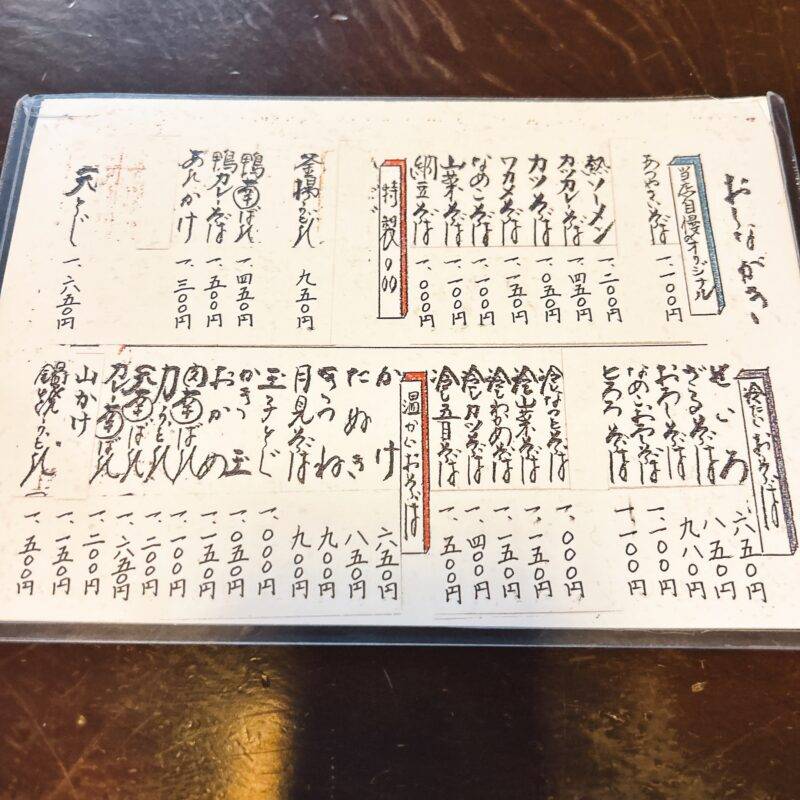 おしながき
当店自慢のオリジナル
あつやさいそば 一、一〇〇円
熱ソーメン 一、二〇〇円
カツカレーそば 一、四五〇円
カツそば 一、〇五〇円
ワカメそば 一、一五〇円
なめこそば 一、一〇〇円
山菜そば 一、一〇〇円
納豆そば 一、〇〇〇円
特製品
釜揚うどん 九五〇円
鴨南ばん 一、四五〇円
鴨カレーそば 一、五〇〇円
あんかけ 一、三〇〇円
天とじ 一、六五〇円
冷たいおそば
せいろ 六五〇円
ざるそば 八五〇円
おろしそば 九八〇円
なめこおろしそば 一、一〇〇円
とろろそば 一、一〇〇円
冷なっとそば 一、〇〇〇円
冷山菜そば 一、一五〇円
冷わかめそば 一、一五〇円
冷しカツそば 一、四〇〇円
冷し五目そば 一、五〇〇円
温かいおそば
かけ 六五〇円
たぬき 八五〇円
きつね 九〇〇円
月見そば 九〇〇円
玉子とじ 一、〇〇〇円
かき玉 一、〇五〇円
おかめ 一、一五〇円
肉南ばん 一、一〇〇円
力うどん 一、二〇〇円
天南ばん 一、六五〇円
カレー南ばん 一、二〇〇円
山かけ 一、一五〇円
鍋焼うどん 一、五〇〇円